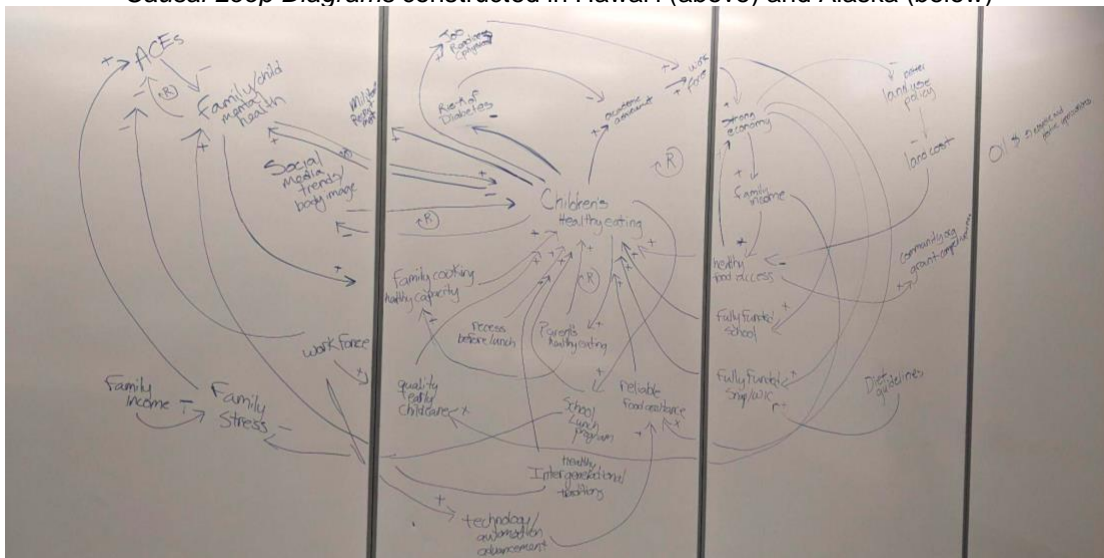 Causal Loop Diagrams constructed in Hawai'i (above) and Alaska (below)
ACEs
Family/child
mental
health
R
Social
media
trends/
body image
work force
Family
Income
Family
Stress
Job
Readiness
Risk of
Diabetes
academic
work
force
R
Children's
Healthy eating
R
R
Family cooking
healthy capacity
recess
before lunch
Parent's
healthy eating
quality
early
childcare
School
Lunch
program
reliable
food assistance
healthy
Intergenerational
traditions
technology/
automation
advancement
Strong
economy
family
income
healthy
food access
Fully funded
school
Fully funded
Snap/WIC
land use
policy
land cost
Community org
grant
Diet guidelines
Oil $